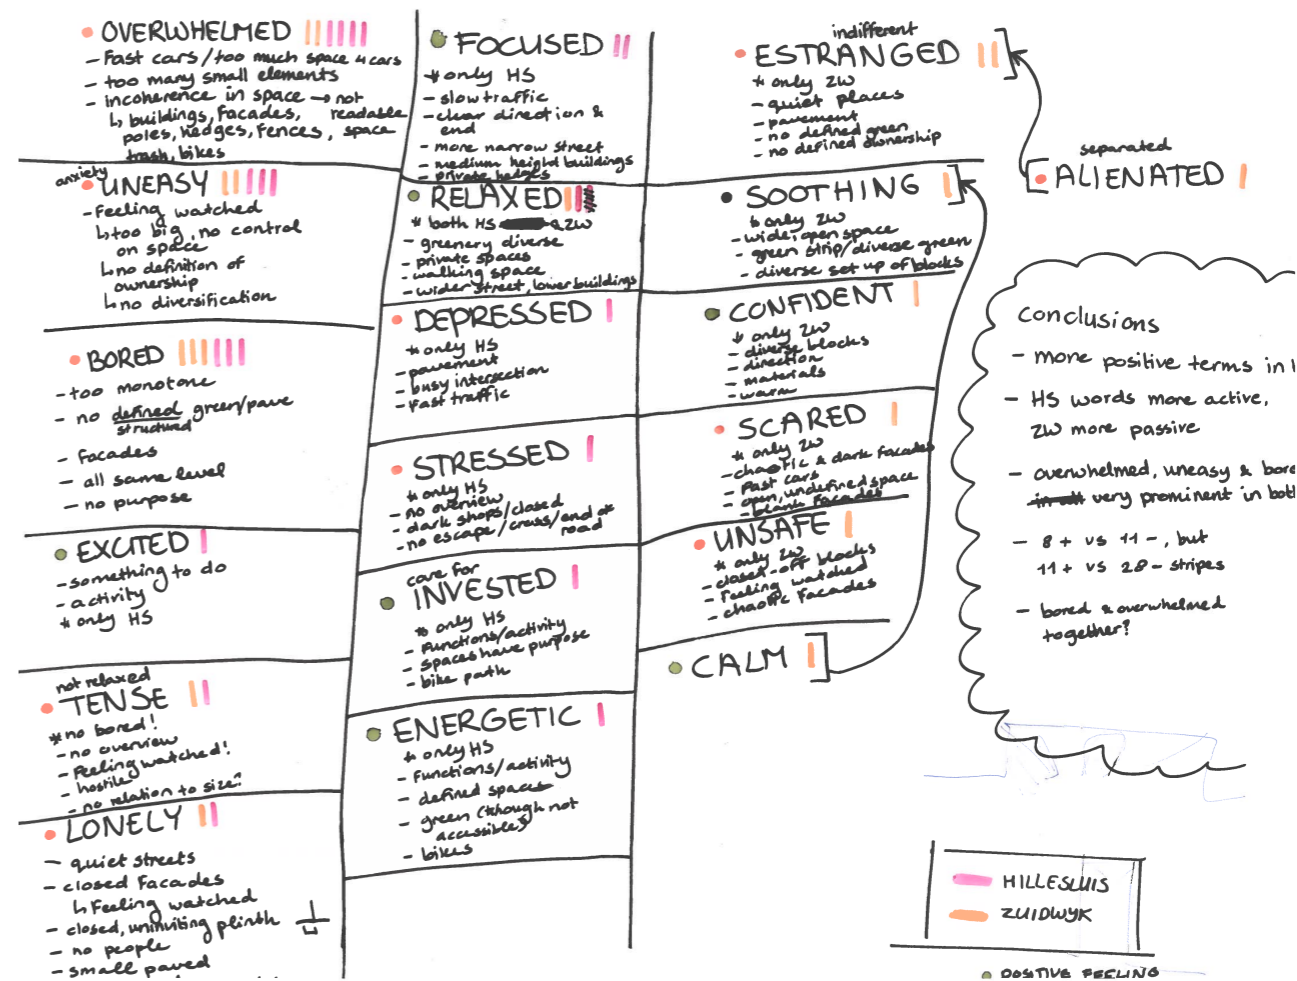 OVERWHELMED
- Fast cars/too much space 4 cars
- too many small elements
- incoherence in space → not
↳ buildings, facades, readable
poles, hedges, fences, space
trash, bikes
anxiety
UNEASY
- Feeling watched
↳ too big, no control
on space
↳ no definition of
ownership
↳ no diversification
BORED
- too monotone
- no defined green/pave
structured
- facades
- all same level
- no purpose
EXCITED
- something to do
- activity
* only HS
not relaxed
TENSE
* no bored!
- no overview
- Feeling watched!
- hostile
- no relation to size?
LONELY
- quiet streets
- closed facades
↳ Feeling watched
- closed, uninviting plinth
- no people
- small paved
FOCUSED
* only HS
- slow traffic
- clear direction &
end
- more narrow street
- medium height buildings
- private hedges
RELAXED
* both HS & ZW
- greenery diverse
- private spaces
- walking space
- wider street, lower buildings
DEPRESSED
* only HS
- pavement
- busy intersection
- fast traffic
STRESSED
* only HS
- no overview
- dark shops/closed
- no escape/cross/end of
road
care for
INVESTED
* only HS
- Functions/activity
- spaces have purpose
- bike path
ENERGETIC
* only HS
- Functions/activity
- defined spaces
- green (though not
accessible)
- bikes
indifferent
ESTRANGED
* only ZW
- quiet places
- pavement
- no defined green
- no defined ownership
separated
ALIENATED
SOOTHING
* only ZW
- wide, open space
- green strip/diverse green
- diverse set up of blocks
CONFIDENT
* only ZW
- diverse blocks
- direction
- materials
- warm
SCARED
* only ZW
- chaotic & dark facades
- Fast cars
- open, undefined space
- blank facades
UNSAFE
* only ZW
- closed-off blocks
- Feeling watched
- chaotic facades
CALM
conclusions
- more positive terms in
- HS words more active,
ZW more passive
- overwhelmed, uneasy & bore
very prominent in both
- 8 + vs 11 -, but
11 + vs 28 - stripes
- bored & overwhelmed
together?
HILLESLUIS
ZUIDWYK
POSITIVE FEELING